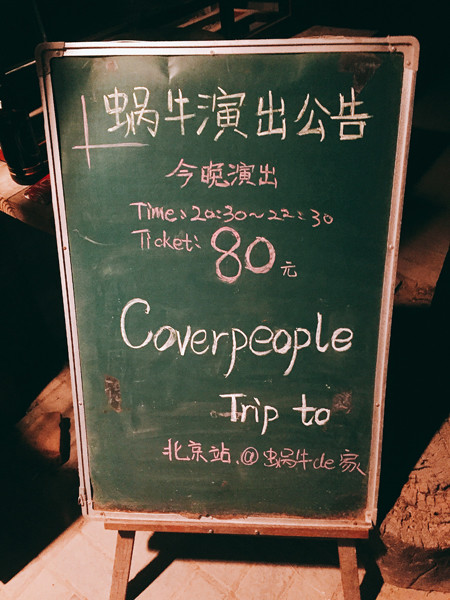 蜗牛演出公告
今晚演出
Time: 20:30~22:30
Ticket: 80元
Coverpeople
Trip to
北京站.@蜗牛de家